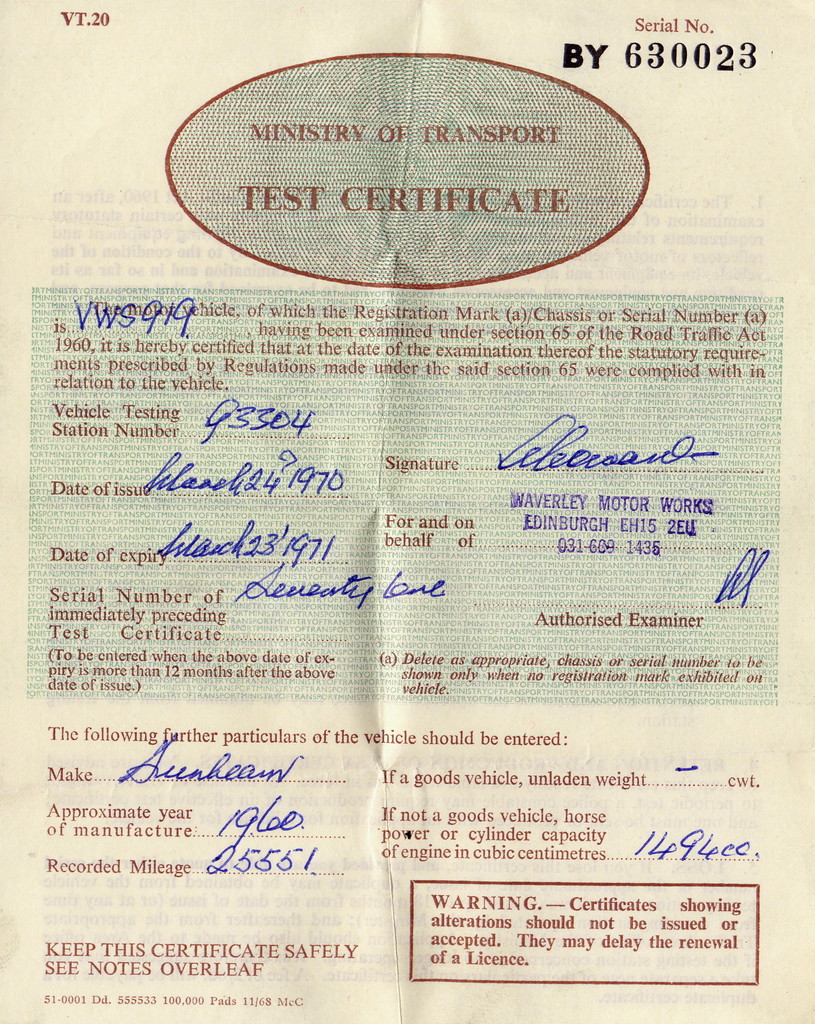 VT.20
Serial No.
BY 630023
MINISTRY OF TRANSPORT
TEST CERTIFICATE
The motor vehicle, of which the Registration Mark (a)/Chassis or Serial Number (a)
is VWS 919, having been examined under section 65 of the Road Traffic Act
1960, it is hereby certified that at the date of the examination thereof the statutory require-
ments prescribed by Regulations made under the said section 65 were complied with in
relation to the vehicle.
Vehicle Testing
Station Number G3304
Date of issue March 24 1970
Signature
Date of expiry March 23 1971
For and on
behalf of
WAVERLEY MOTOR WORKS
EDINBURGH EH15 2EU
031-669 1435
Serial Number of Seventy One
immediately preceding
Test Certificate
Authorised Examiner
(To be entered when the above date of ex-
piry is more than 12 months after the above
date of issue.)
(a) Delete as appropriate, chassis or serial number to be
shown only when no registration mark exhibited on
vehicle.
The following further particulars of the vehicle should be entered:
Make Sunbeam
If a goods vehicle, unladen weight - cwt.
Approximate year
of manufacture 1960.
If not a goods vehicle, horse
power or cylinder capacity
of engine in cubic centimetres 1494cc.
Recorded Mileage 25551.
WARNING.—Certificates showing
alterations should not be issued or
accepted. They may delay the renewal
of a Licence.
KEEP THIS CERTIFICATE SAFELY
SEE NOTES OVERLEAF
51-0001 Dd. 555533 100,000 Pads 11/68 McC